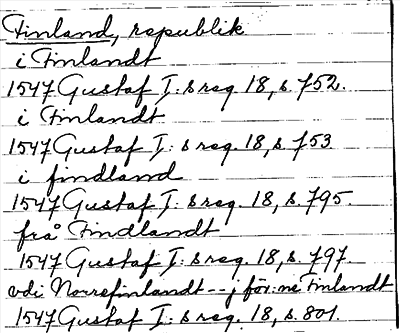 Finland, republik
i Finlandt
1547 Gustaf I:s reg. 18, s. 752.
i Finlandt
1547 Gustaf I:s reg. 18, s. 753
i findland
1547 Gustaf I:s reg. 18, s. 795.
från Findlandt
1547 Gustaf I:s reg. 18, s. 797.
vdi Norrefinlandt -- j för:ne Finlandt
1547 Gustaf I:s reg. 18, s. 801.